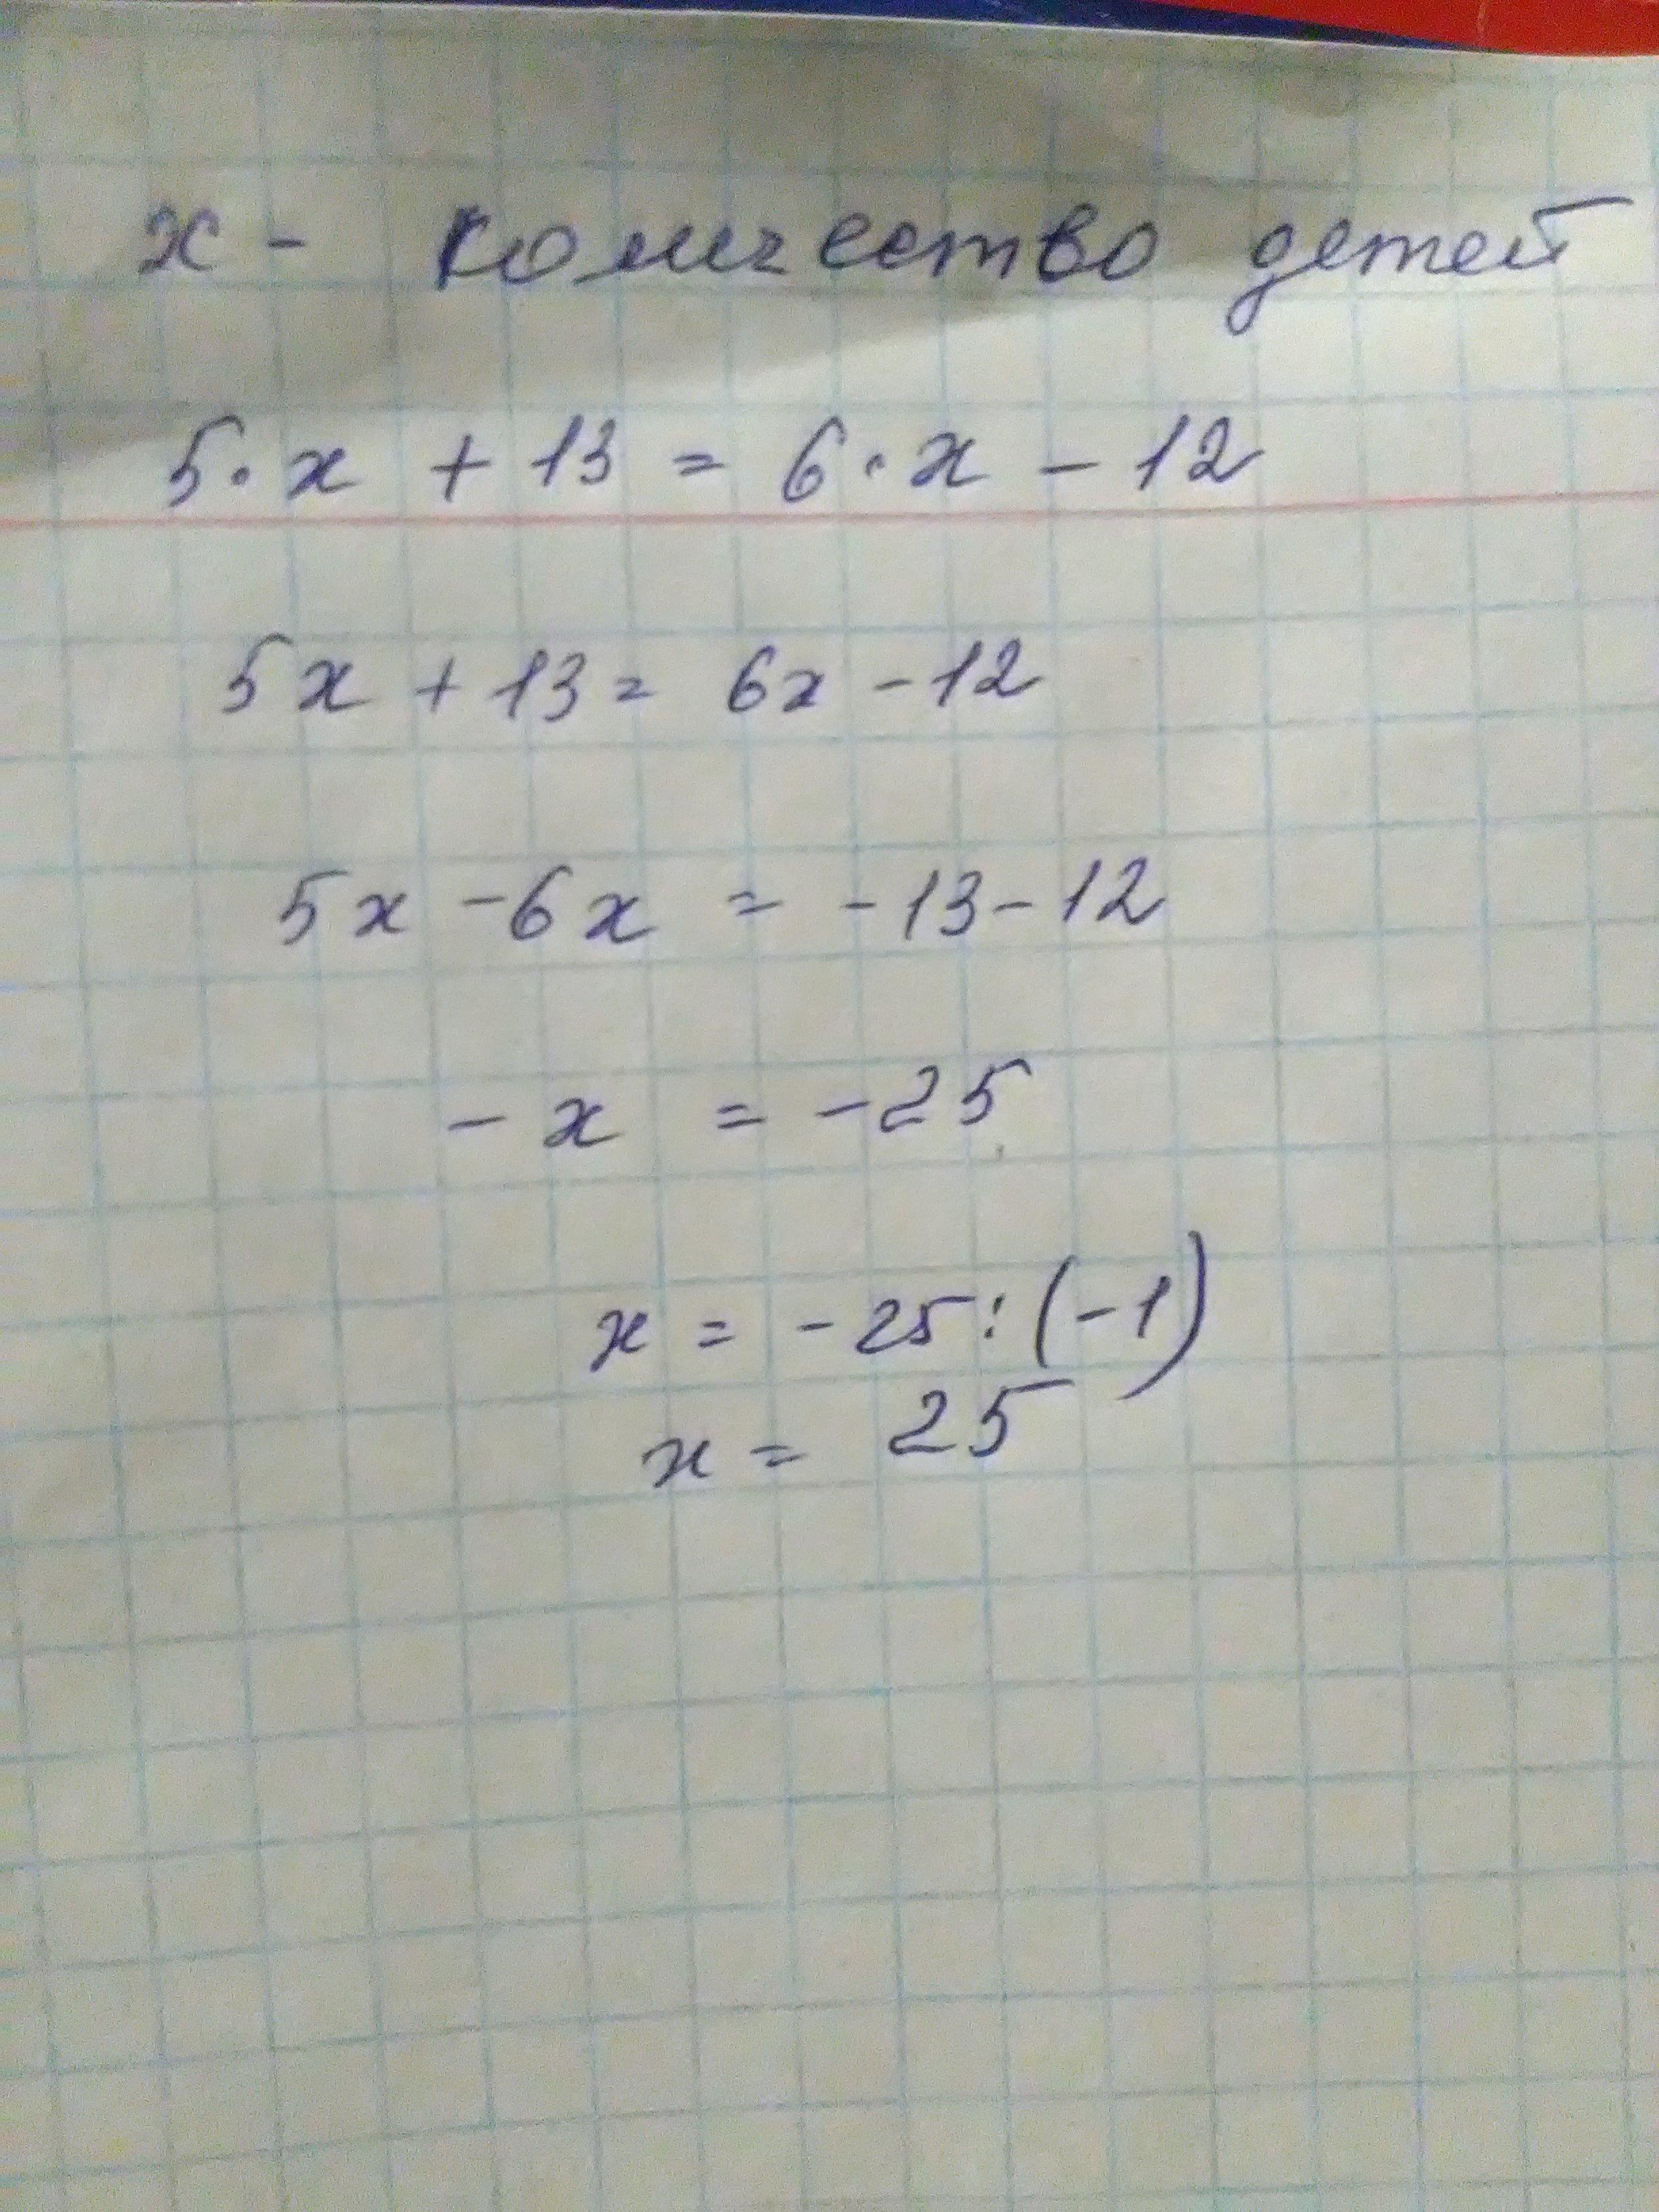 x - количество детей
5·x + 13 = 6·x - 12
5x + 13 = 6x - 12
5x - 6x = -13 - 12
- x = -25
x = -25:(-1)
x = 25